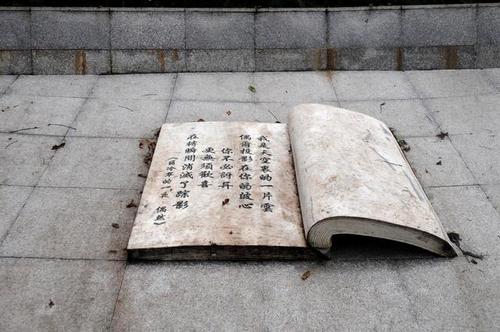 我是天空裏的一片雲
偶爾投影在你的波心
你不必訝異
更無須歡喜
在轉瞬間消滅了踪影
（翡冷翠的一夜 偶然）